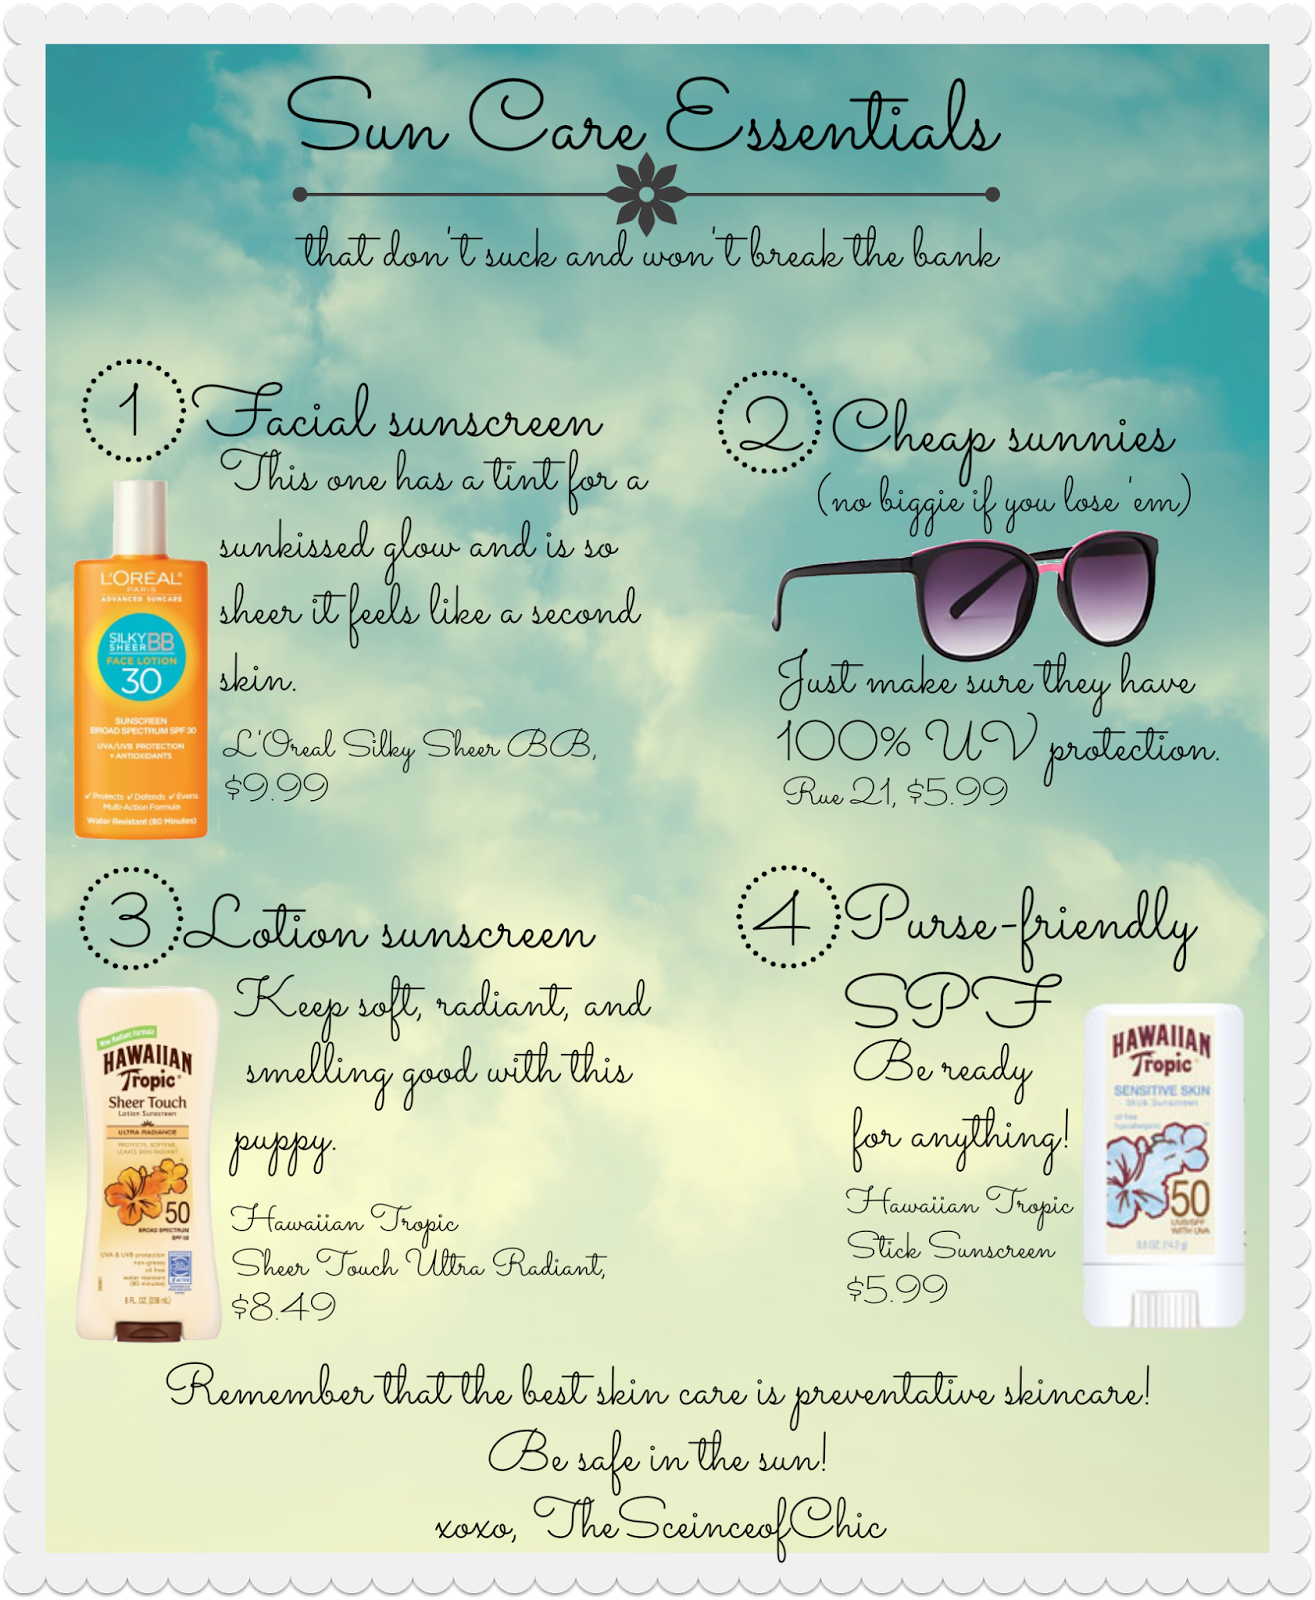 Sun Care Essentials
that don't suck and won't break the bank
1 Facial sunscreen
This one has a tint for a
sunkissed glow and is so
sheer it feels like a second
skin.
L'Oreal Silky Sheer BB,
$9.99
L'ORÉAL
PARIS
ADVANCED SUNCARE
SILKY
SHEER BB
FACE LOTION
30
SUNSCREEN
BROAD SPECTRUM SPF 30
UVA/UVB PROTECTION
+ ANTIOXIDANTS
✓Protects ✓Defends ✓Evens
Multi-Action Formula
Water Resistant (80 Minutes)
2 Cheap sunnies
(no biggie if you lose 'em)
Just make sure they have
100% UV protection.
Rue 21, $5.99
3 Lotion sunscreen
Keep soft, radiant, and
smelling good with this
puppy.
Hawaiian Tropic
Sheer Touch Ultra Radiant,
$8.49
New Radiant Formula
HAWAIIAN
Tropic
Sheer Touch
Lotion Sunscreen
ULTRA RADIANCE
PROTECTS, SOFTENS,
LEAVES SKIN RADIANT
50
BROAD SPECTRUM
SPF 50
UVA & UVB protection
non-greasy
oil free
water resistant
(80 minutes)
8 FL. OZ. (236 mL)
4 Purse-friendly
SPF
Be ready
for anything!
Hawaiian Tropic
Stick Sunscreen
$5.99
HAWAIIAN
Tropic
SENSITIVE SKIN
Stick Sunscreen
oil free
hypoallergenic
50
WITH UVA
0.5 OZ. (14.2 g)
Remember that the best skin care is preventative skincare!
Be safe in the sun!
xoxo, TheSceinceofChic